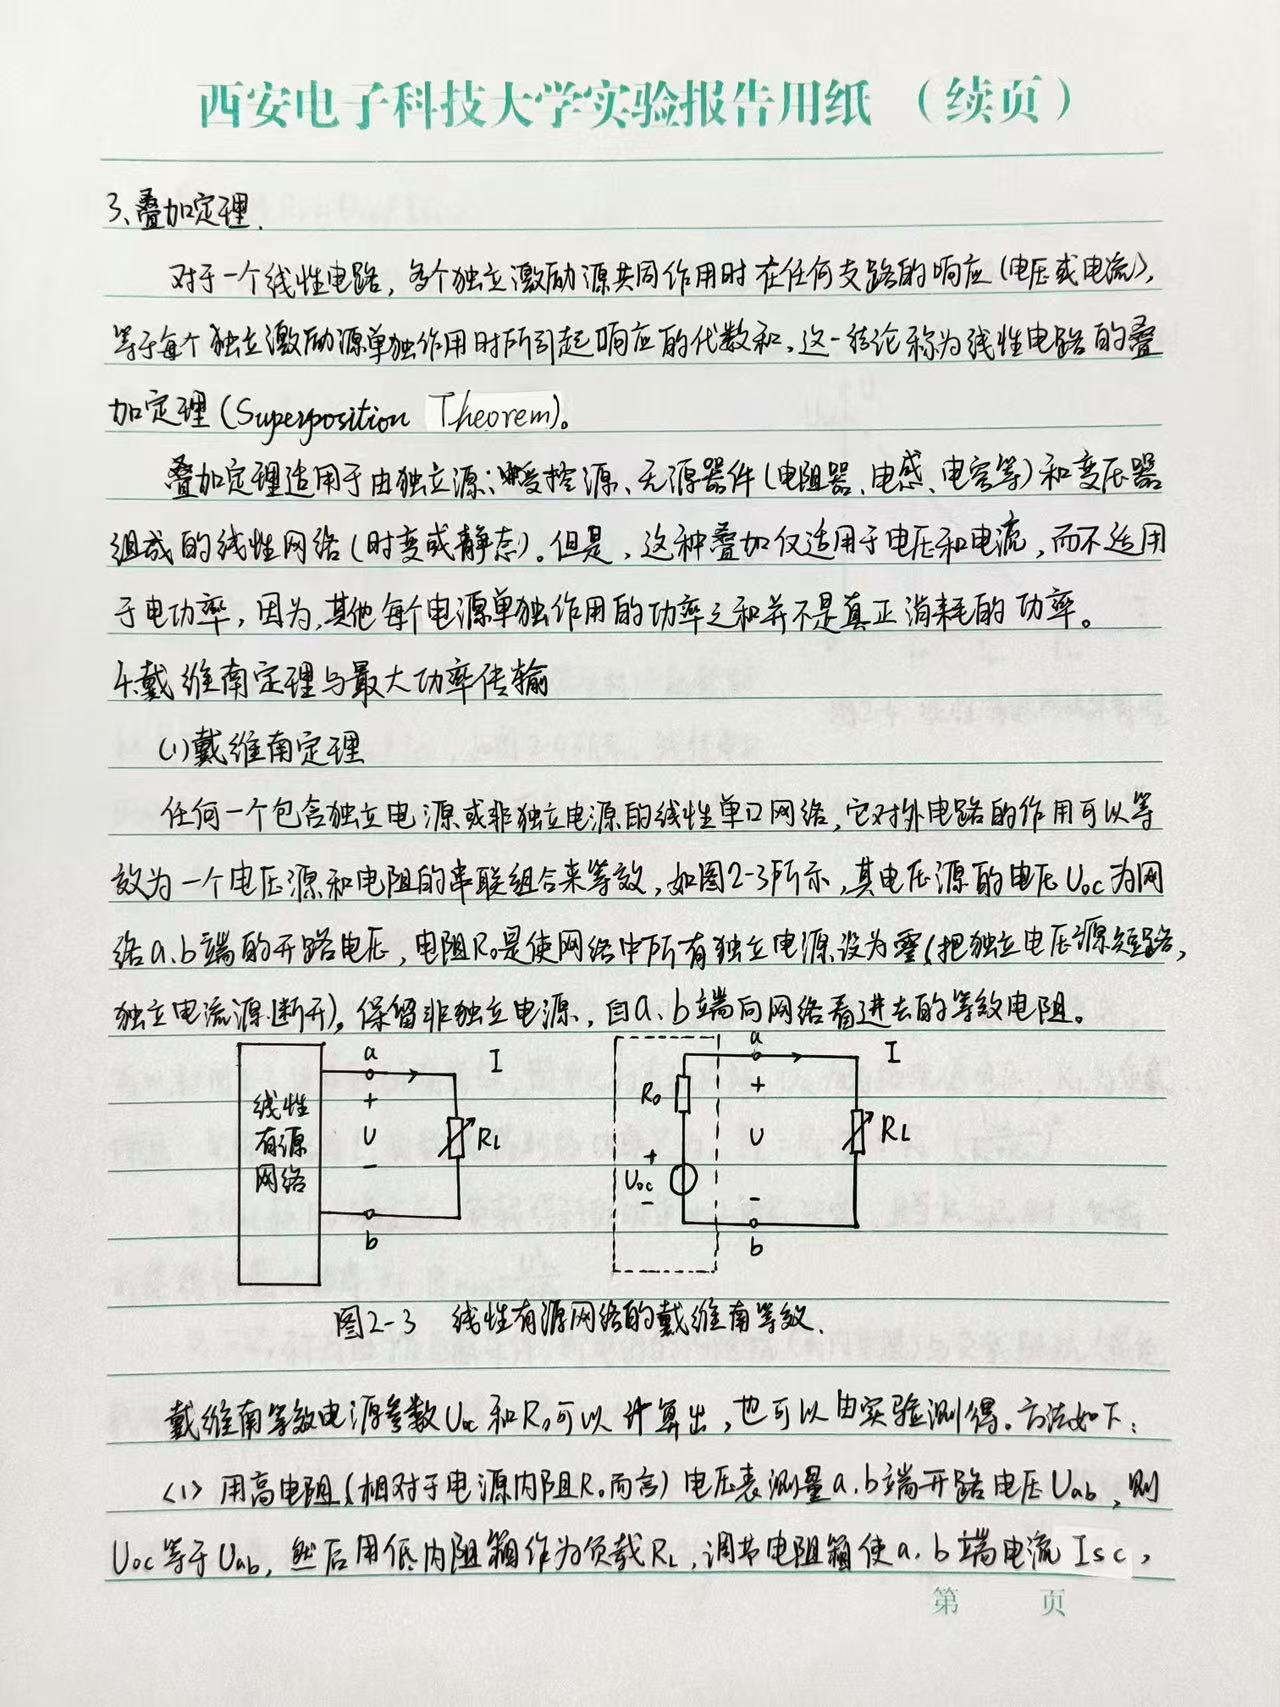 西安电子科技大学实验报告用纸（续页）
3、叠加定理.
对于一个线性电路，多个独立激励源共同作用时在任何支路的响应（电压或电流），
等于每个独立激励源单独作用时所引起响应的代数和，这一结论称为线性电路的叠
加定理（Superposition Theorem）。
叠加定理适用于由独立源、受控源、无源器件（电阻器、电感、电容等）和变压器
组成的线性网络（时变或静态）。但是，这种叠加仅适用于电压和电流，而不适用
于电功率，因为，其他每个电源单独作用的功率之和并不是真正消耗的功率。
4.戴维南定理与最大功率传输
(1)戴维南定理
任何一个包含独立电源或非独立电源的线性单口网络，它对外电路的作用可以等
效为一个电压源和电阻的串联组合来等效，如图2-3所示，其电压源的电压Uoc为网
络a、b端的开路电压，电阻R₀是使网络中所有独立电源设为零（把独立电压源短路，
独立电流源断开），保留非独立电源，自a、b端向网络看进去的等效电阻。
线性
有源
网络
a
I
+
U
-
RL
b
R₀
+
Uoc
-
a
I
+
U
-
RL
b
图2-3 线性有源网络的戴维南等效.
戴维南等效电源参数Uoc和R₀可以计算出，也可以由实验测得。方法如下：
<1> 用高电阻（相对于电源内阻R₀而言）电压表测量a、b端开路电压Uab，则
Uoc等于Uab，然后用低内阻箱作为负载RL，调节电阻箱使a、b端电流Isc，
第 页